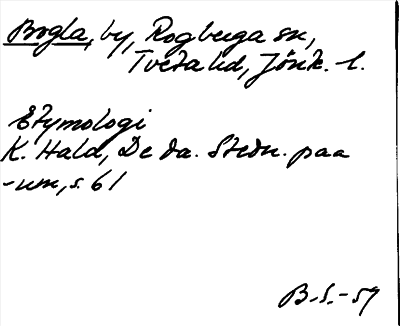 Bogla, by, Rogberga sn,
Tveta hd, Jönk. l.
Etymologi
K. Hald, De da. Stedn. paa
-um, s. 61
B.S.-59